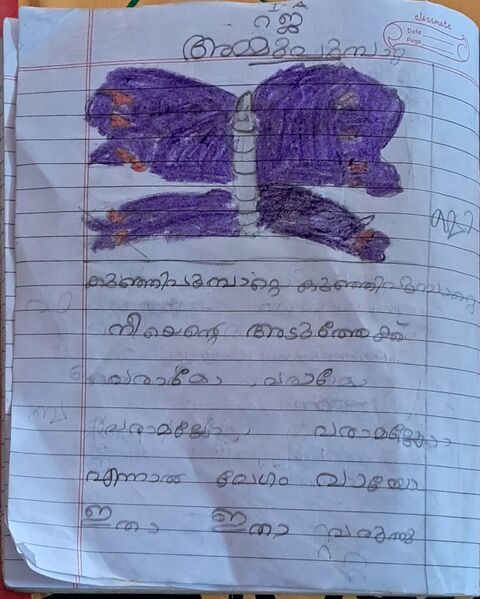 I A
റജ
classmate
Date
Page
അമ്മും പൂമ്പാറ്റ
കുഞ്ഞിപൂമ്പാറ്റെ കുഞ്ഞിപൂമ്പാറ്റെ
നീയെന്റെ അടുത്തേക്ക്
വരായോ വരായോ
വരാമല്ലോ വരാമല്ലോ
എന്നാൽ വേഗം വായോ
ഇതാ ഇതാ വരുന്നു